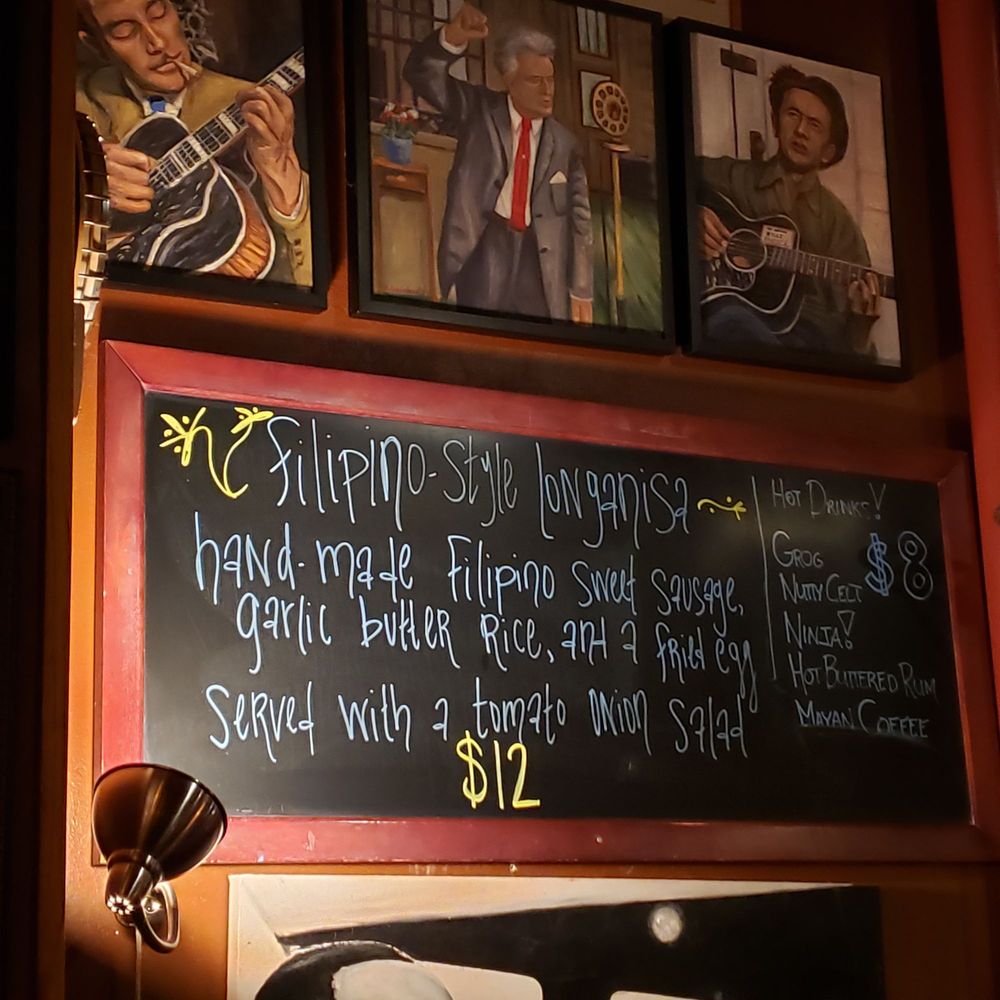 filipino-style longanisa
hand-made filipino sweet sausage,
garlic butter rice, and a fried egg
served with a tomato onion salad
$12
HOT DRINKS!
GROG
$8
NUTTY CELT
NINJA!
HOT BUTTERED RUM
MAYAN COFFEE